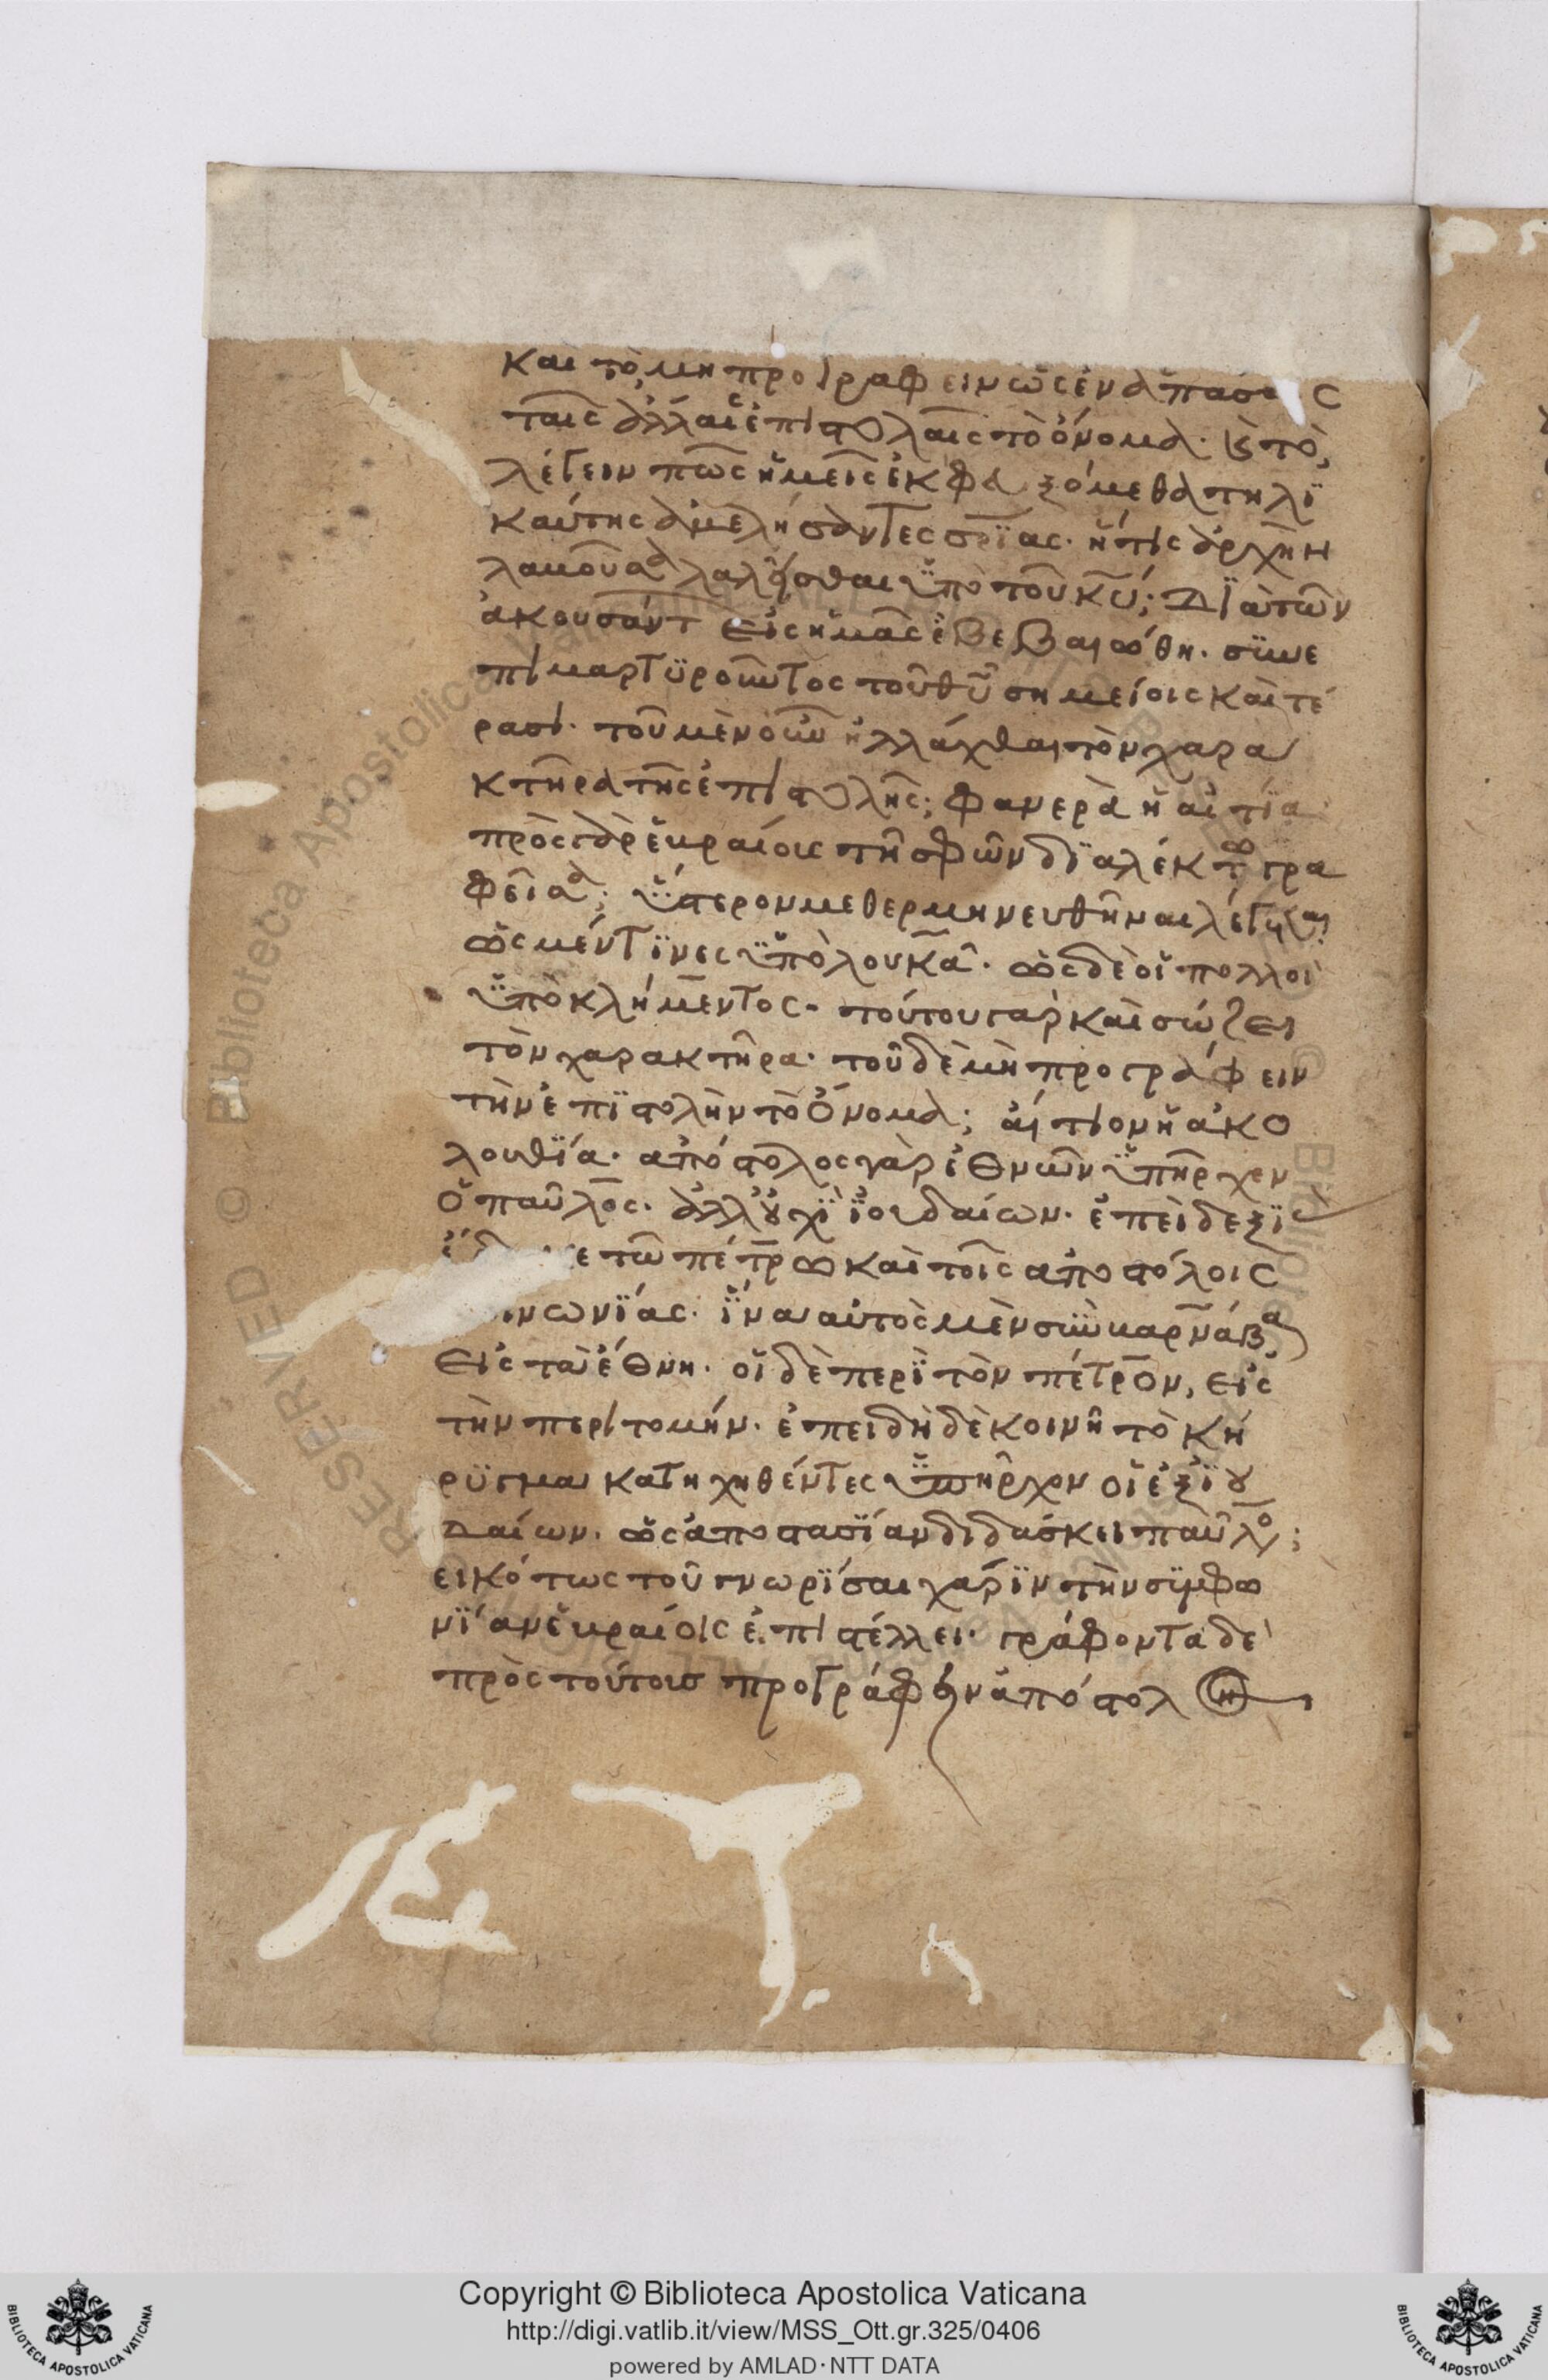 και το, μη προγραφειν ὡς ἐν ἁπάσαις
ταῖς ἄλλαις ἐπιστολαῖς τὸ ὄνομα· καὶ τὸ,
λέγειν πῶς ἡμεῖς ἐκφευξόμεθα τηλϊ
καύτης ἀμελήσαντες σρΐας· ἥτις ἀρχὴν
λαβοῦσα λαλεῖσθαι ὑπὸ τοῦ κυ; Δϊὰ τῶν
ἀκουσάντ εἰς ἡμᾶς ἐβεβαιώθη· σϋνε
πιμαρτϋροῦντος τοῦ θυ σημείοις καὶ τέ
ρασι· τοῦ μὲν οὖν ἠλλάχθαι τὸν χαρα
κτῆρα τῆς ἐπιστολῆς; φανερὰ ἡ αἰτΐα
πρὸς γὰρ ἑβραίοις τῆ σφῶν δϊαλέκτω γρα
φεῖσα; ὕστερον μεθερμηνευθῆναι λέγεται
ὡς μέν τϊνες ὑπὸ λουκᾶ· ὡς δὲ οἱ πολλοὶ
ὑπὸ κλήμεντος· τούτου γὰρ καὶ σώζει
τὸν χαρακτῆρα· τοῦ δὲ μὴ προγράφειν
τὴν ἐπϊστολὴν τὸ ὄνομα; αἴτιον ἡ ἀκο
λουθΐα· ἀπόστολος γὰρ ἐθνῶν ὑπῆρχεν
ὁ παῦλος· ἀλλ' οὐχὶ ἰουδαίων· ἐπεὶ δεξϊὰς
τῶ πέτρω καὶ τοῖς ἀποστόλοις
κοινωνΐας· ἵνα αὐτὸς μὲν σὺν βαρνάβα
εἰς τὰ ἔθνη· οἱ δὲ περὶ τὸν πέτρον, εἰς
τὴν περιτομήν· ἐπειδὴ δὲ κοινῆ τὸ κή
ρϋγμα κατηχηθέντες ὑπῆρχον οἱ ἐξ ϊου
δαίων· ὡς ἀποστασΐαν διδάσκει παῦλο;
εικότως τοῦ γνωρΐσαι χάρϊν τὴν σϋμφω
νΐαν ἑβραίοις ἐπιστέλλει· γράφοντα δὲ
πρὸς τούτοις προγράφειν ἀπόστολ
Copyright © Biblioteca Apostolica Vaticana
http://digi.vatlib.it/view/MSS_Ott.gr.325/0406
powered by AMLAD·NTT DATA